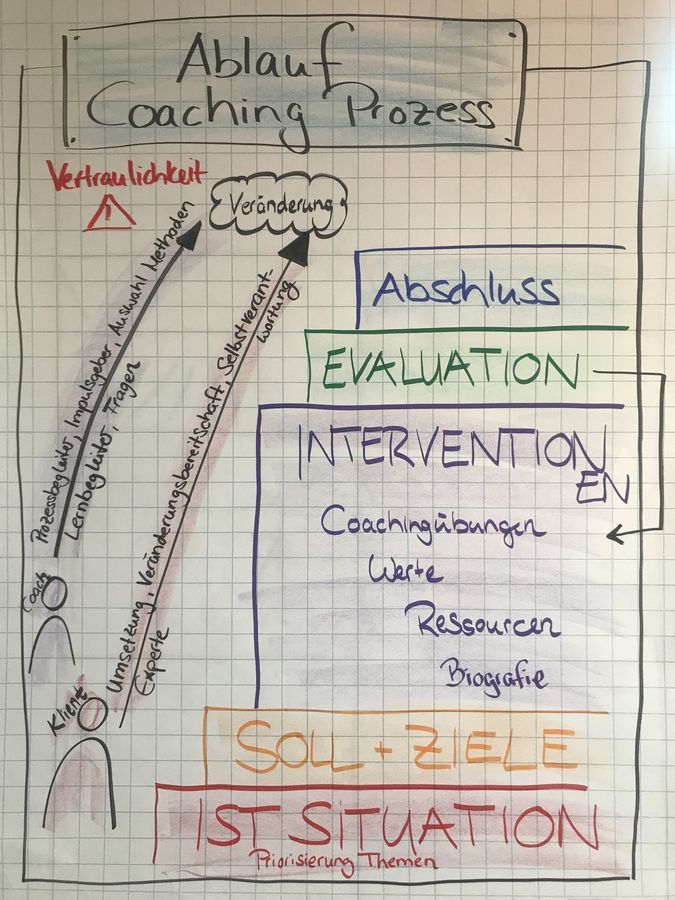 Ablauf
Coaching Prozess
Vertraulichkeit
!
Veränderung
Prozessbegleiter, Impulsgeber, Auswahl Methoden
Lernbegleiter, Fragen
Coach
Umsetzung, Veränderungsbereitschaft, Selbstverant-
wortung
Experte
Klient
Abschluss
EVALUATION
INTERVENTION
EN
Coachingübungen
Werte
Ressourcen
Biografie
SOLL + ZIELE
IST SITUATION
Priorisierung Themen